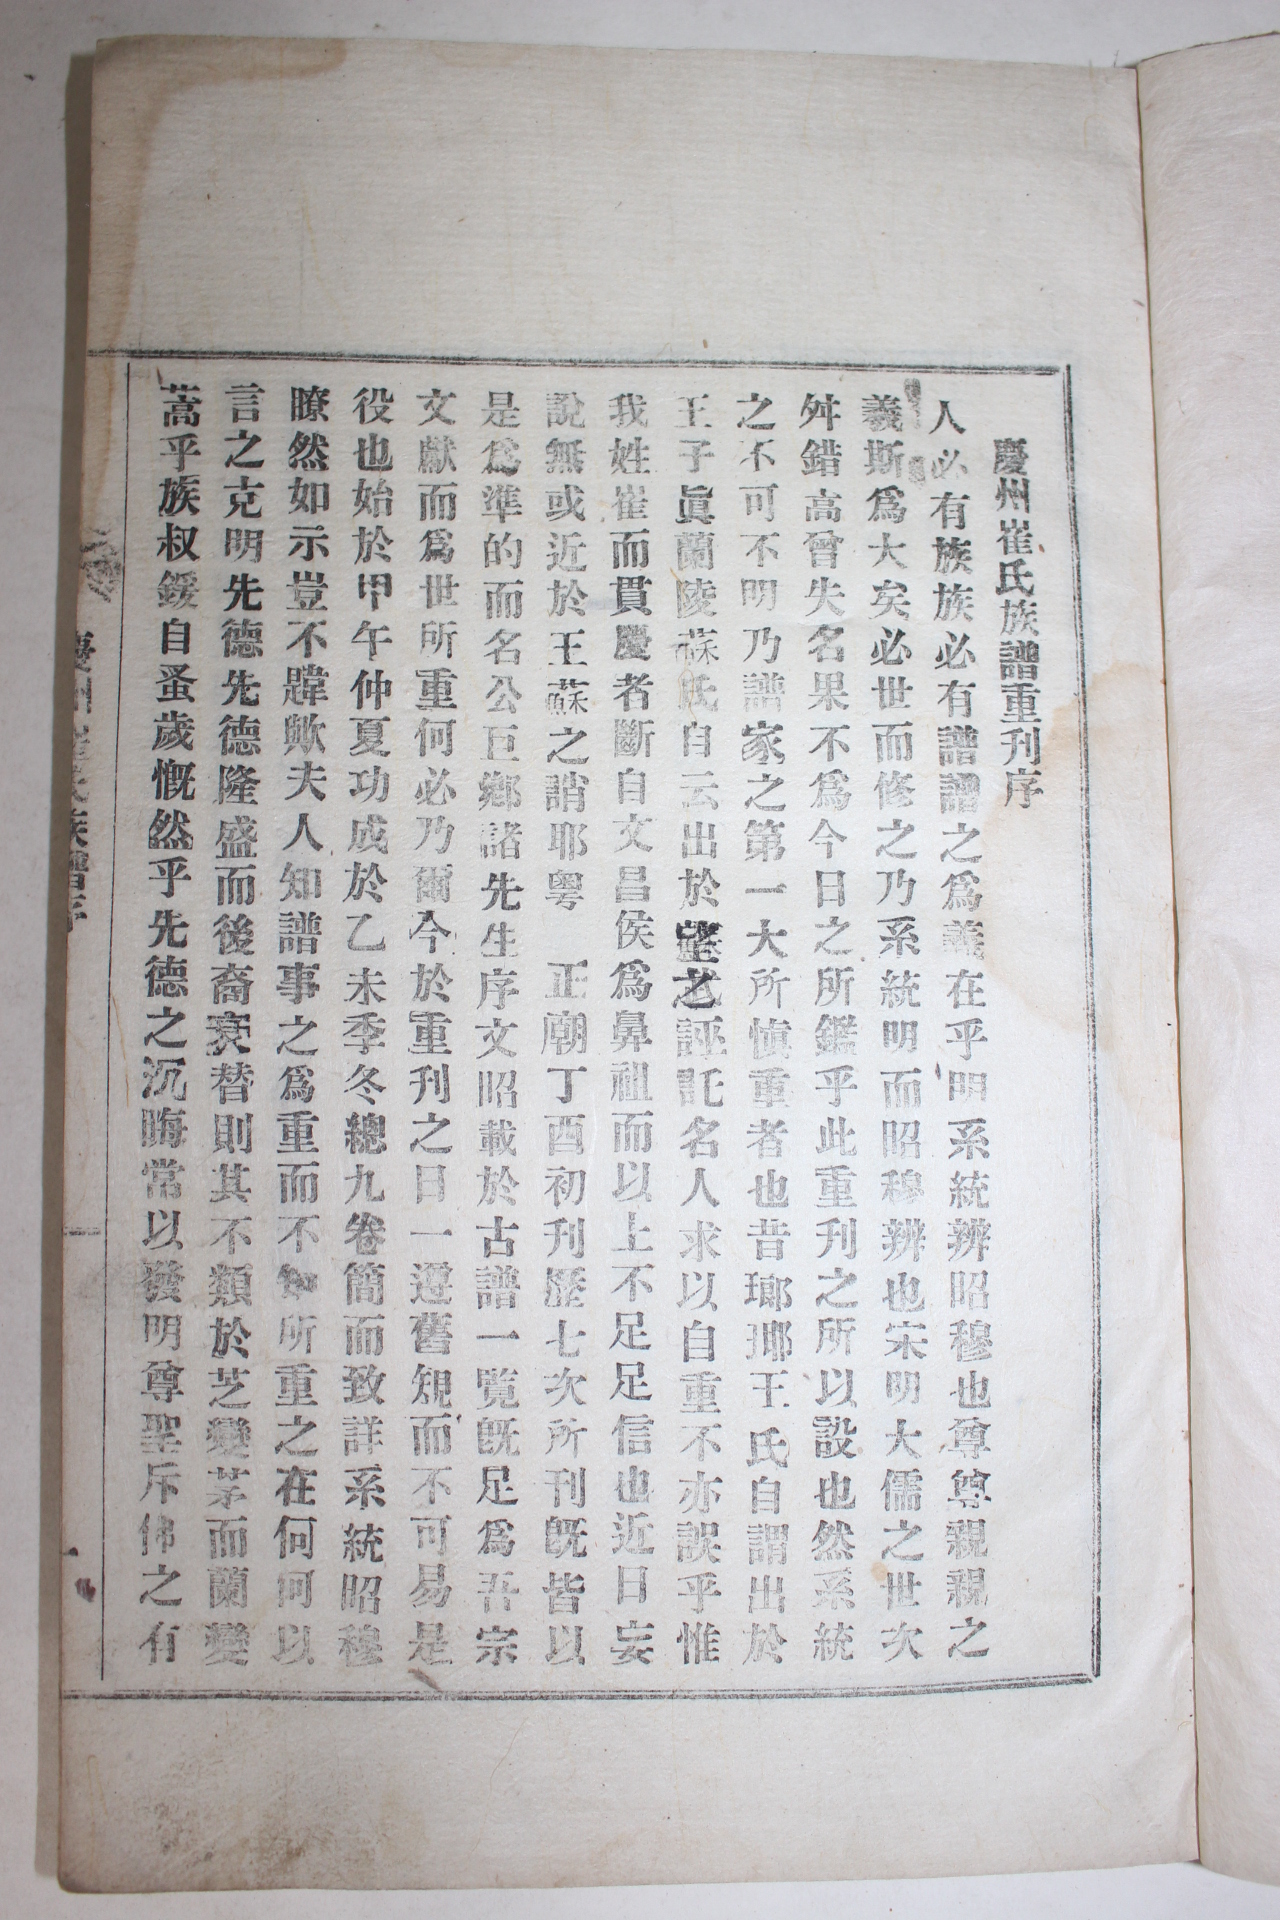 慶州崔氏族譜重刊序
人必有族族必有譜譜之爲義在乎明系統辨昭穆也尊尊親親之
義斯爲大矣必世而修之乃系統明而昭穆辨也宋明大儒之世次
舛錯高曾失名果不爲今日之所鑑乎此重刊之所以設也然系統
之不可不明乃譜家之第一大所愼重者也昔瑯瑘王氏自謂出於
王子眞蘭陵蘇氏自云出於望之誣託名人求以自重不亦誤乎惟
我姓崔而貫慶者斷自文昌侯爲鼻祖而以上不足足信也近日妄
說無或近於王蘇之誚耶粤 正朝丁酉初刊歷七次所刊旣皆以
是爲準的而名公巨鄕諸先生序文昭載於古譜一覧旣足爲吾宗
文獻而爲世所重何必乃爾今於重刊之日一遵舊規而不可易是
役也始於甲午仲夏功成於乙未季冬總九卷簡而致詳系統昭穆
瞭然如示豈不韙歟夫人知譜事之爲重而不知所重之在何何以
言之克明先德先德隆盛而後裔衰替則其不類於芝變茅而蘭變
蒿乎族叔鍰自蚤歲慨然乎先德之沉晦常以發明尊聖斥佛之有
慶州崔氏族譜序
一